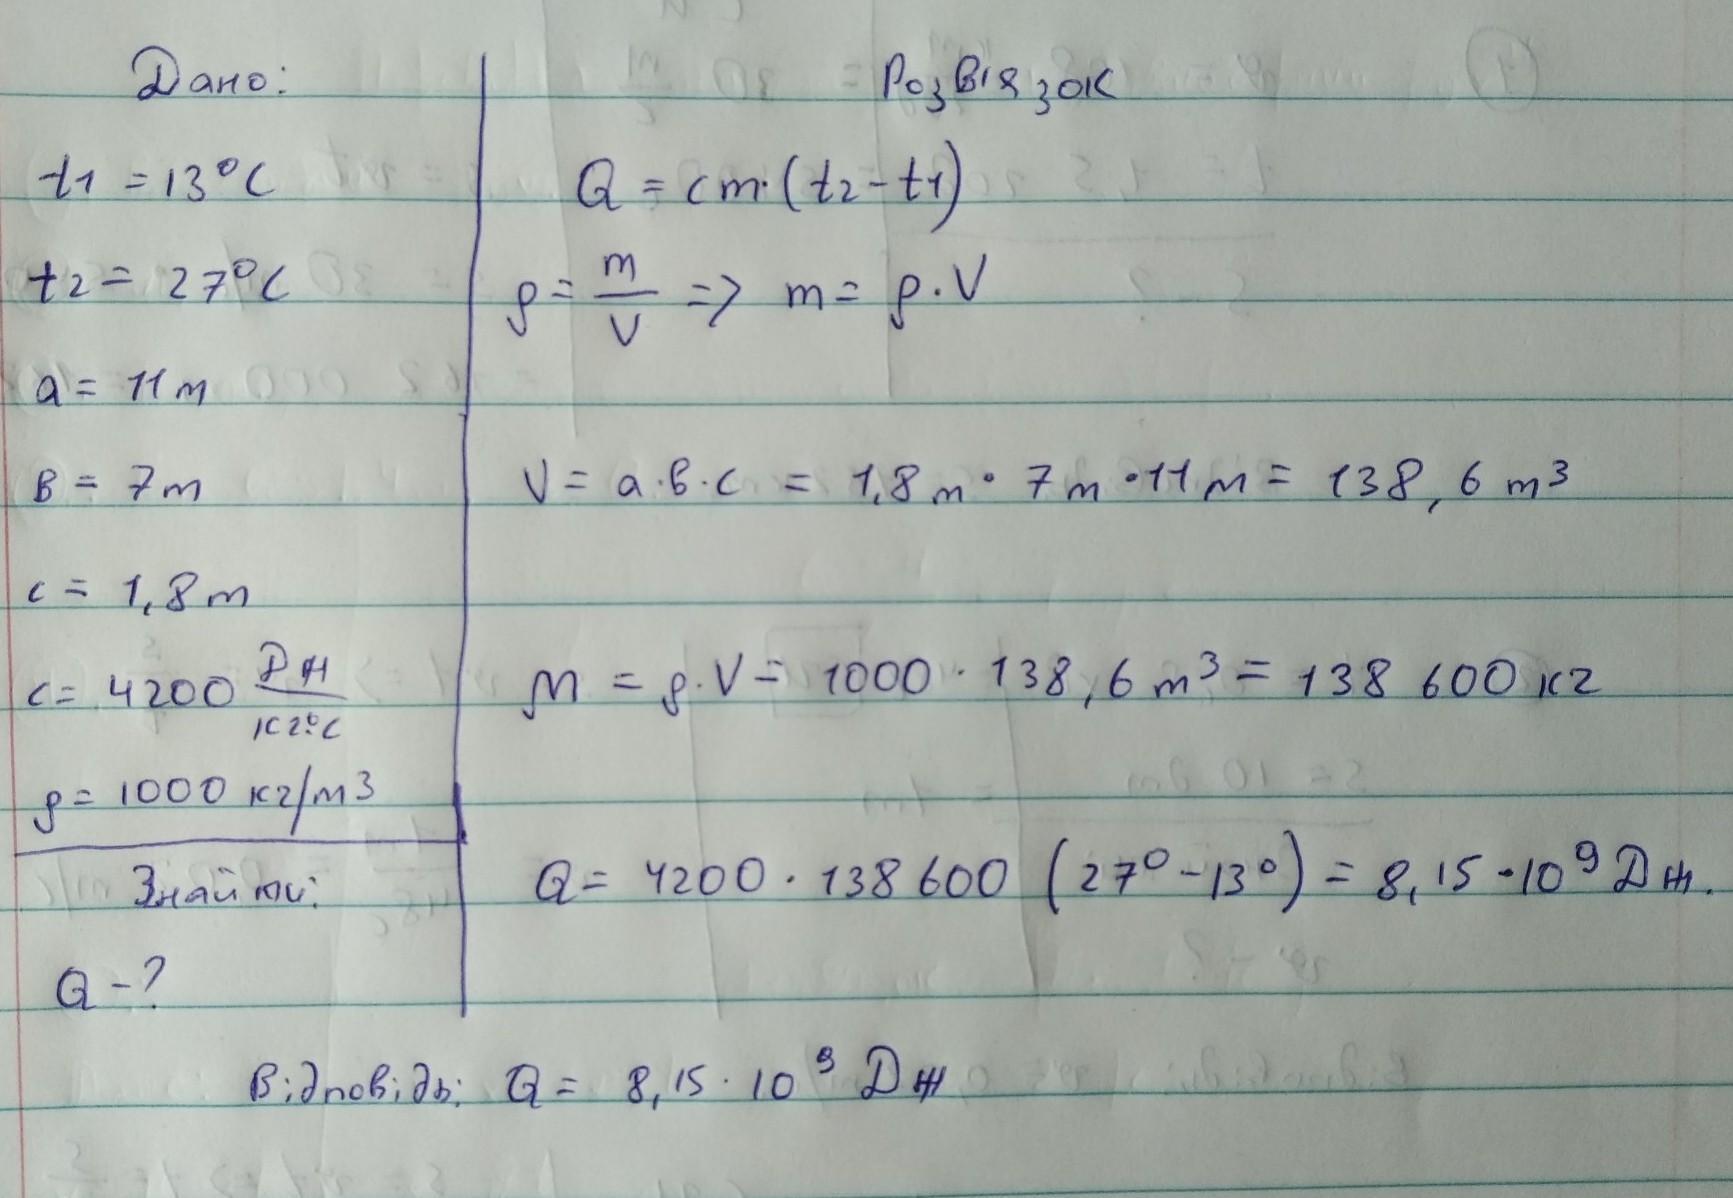 Дано:
t1 = 13°C
t2 = 27°C
a = 11 m
в = 7 m
c = 1,8 m
c = 4200 Дж/кг°C
ρ = 1000 кг/m3
Знайти:
Q - ?
Розв'язок
Q = cm·(t2 - t1)
ρ = m/V => m = ρ · V
V = a·в·c = 1,8 m · 7 m · 11 m = 138,6 m³
m = ρ·V = 1000 · 138,6 m³ = 138 600 кг
Q = 4200 · 138 600 (27° - 13°) = 8,15 · 10⁹ Дж.
Відповідь: Q = 8,15 · 10⁹ Дж